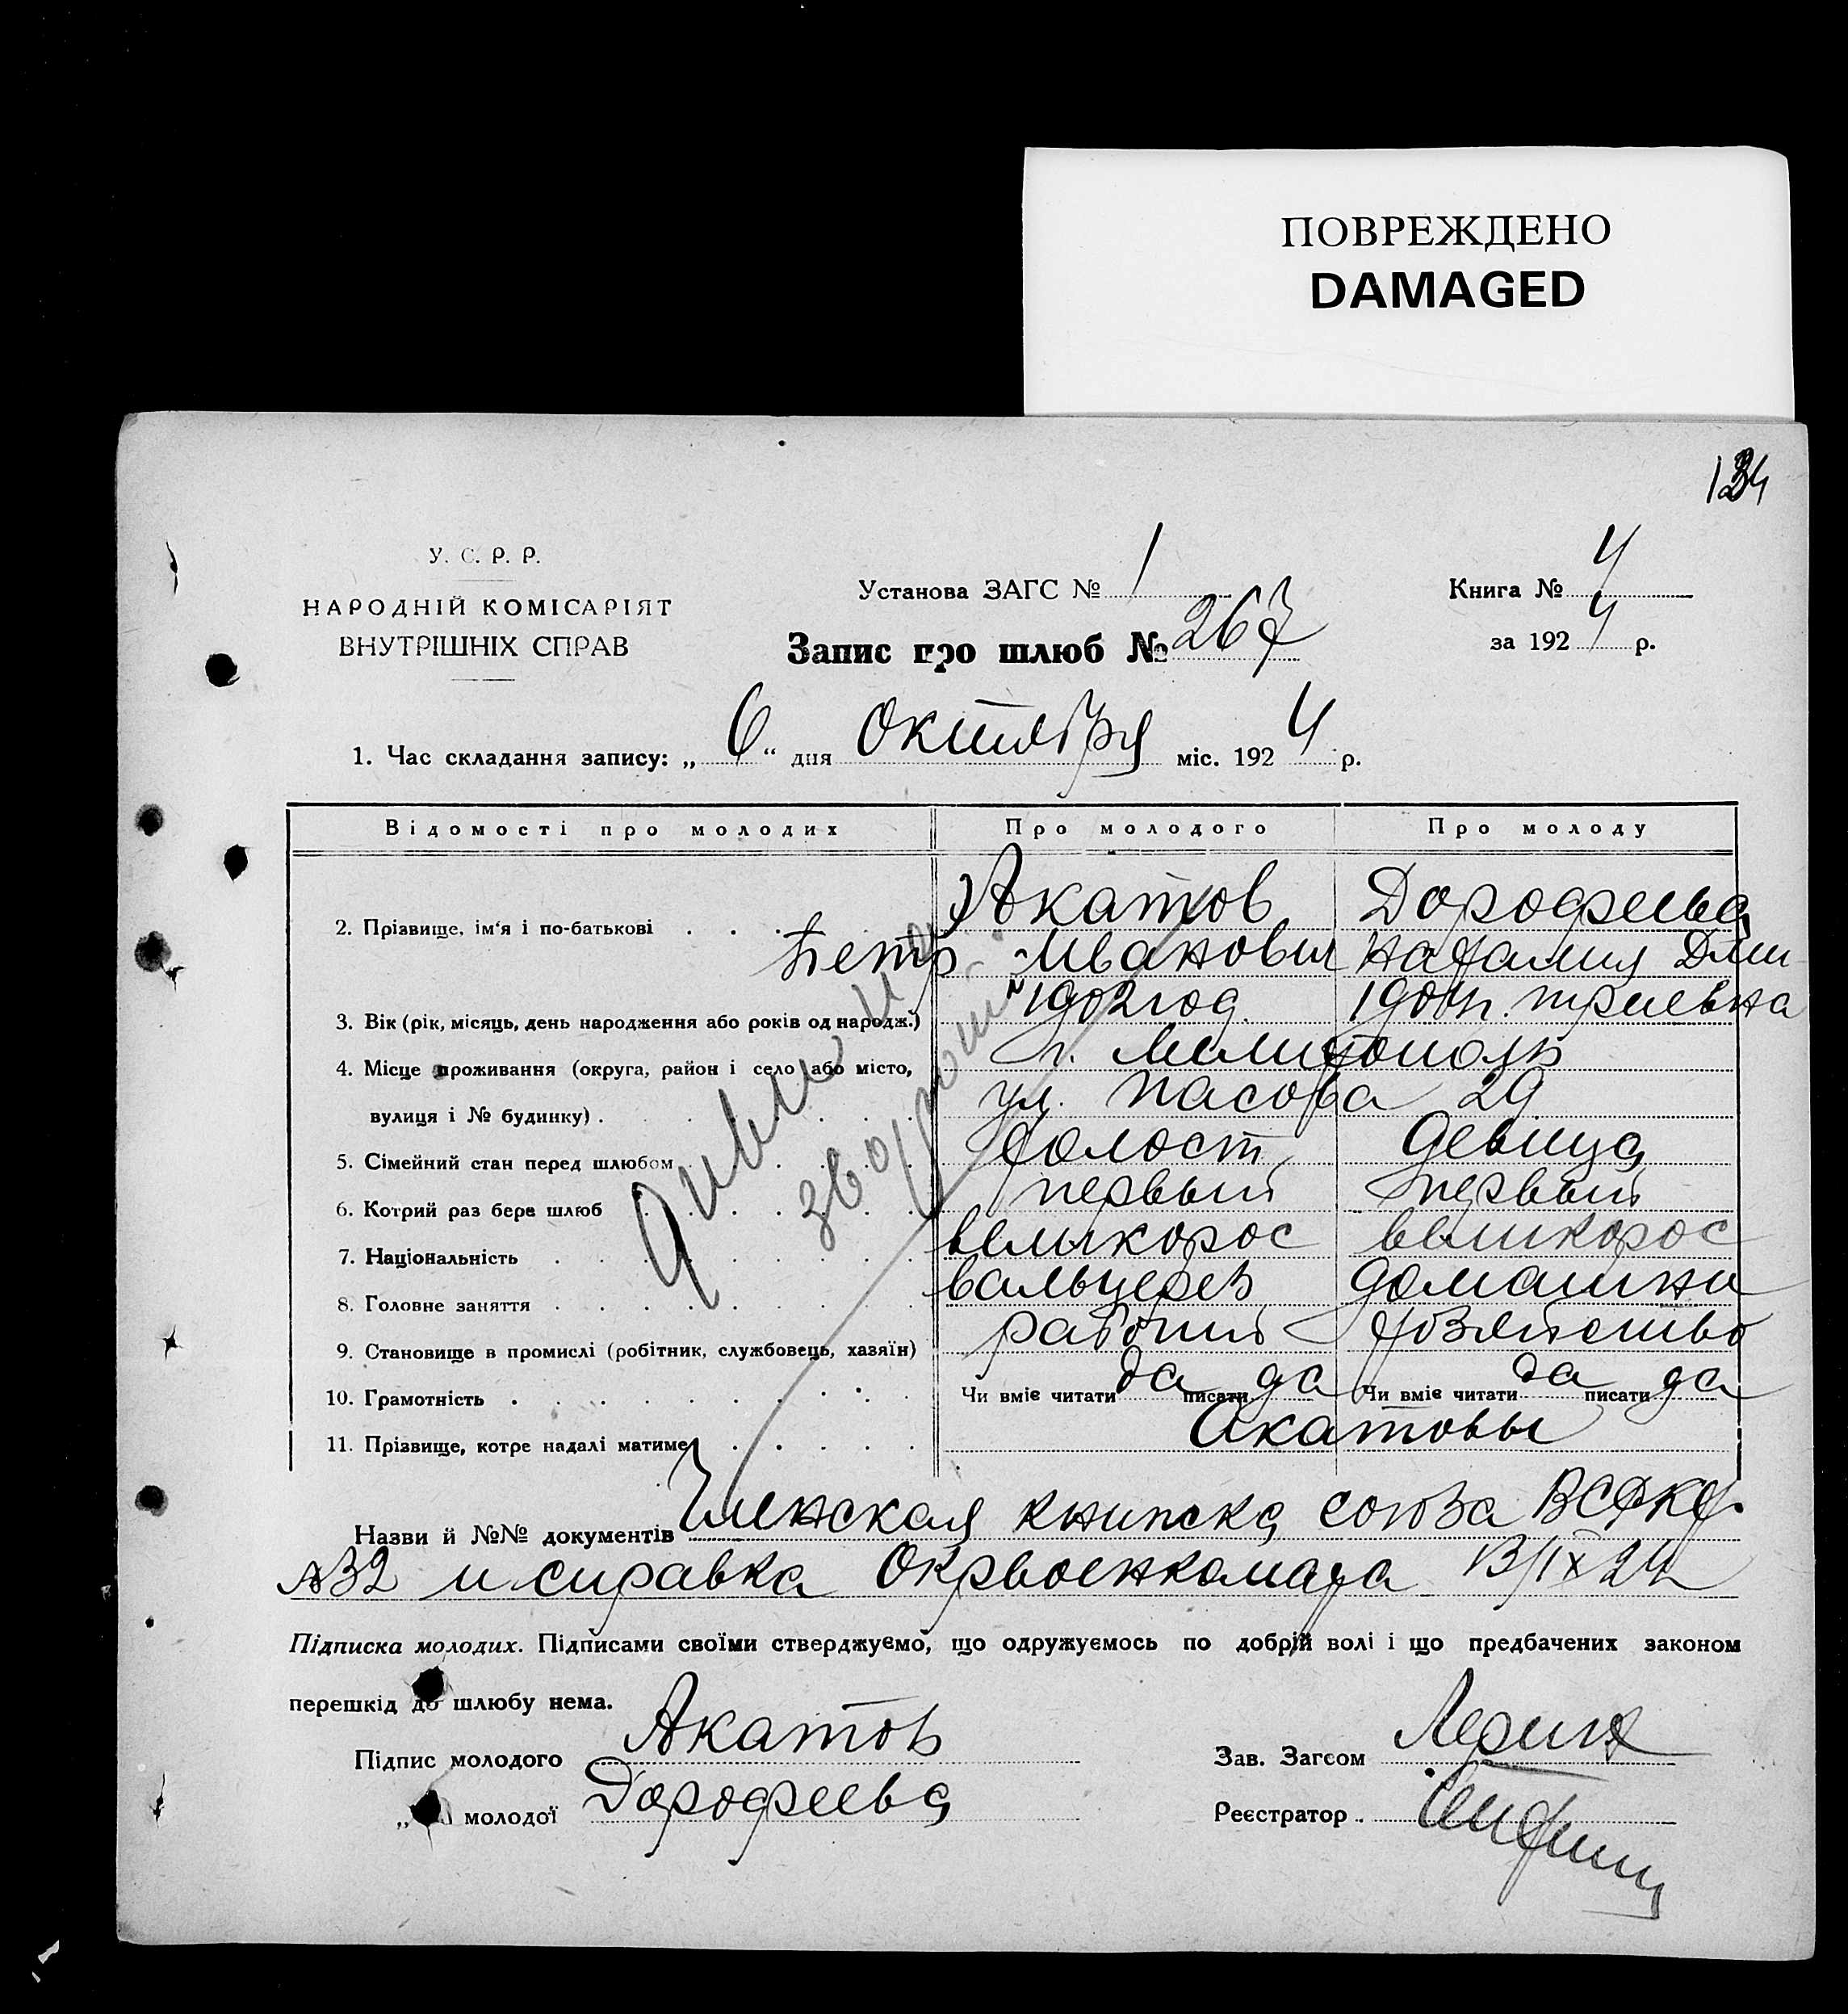 ПОВРЕЖДЕНО
DAMAGED
У. С. Р. Р.
НАРОДНІЙ КОМІСАРІЯТ
ВНУТРІШНІХ СПРАВ
Установа ЗАГС № 1
Запис про шлюб № 267
Книга № 4
за 1924 р.
1. Час складання запису: „6“ дня Октября міс. 1924 р.
Відомості про молодих Про молодого Про молоду
2. Прізвище, ім'я і по-батькові . . . Акатов Дорофеева
Петр Иванович Наталия Дми-
3. Вік (рік, місяць, день народження або років од народж.) 1902 год 1904 г. триевна
4. Місце проживання (округа, район і село або місто, г. Мелитополь
вулиця і № будинку) . ул. 29
5. Сімейний стан перед шлюбом холост девица
6. Котрий раз бере шлюб первый первый
7. Національність великорос великорос
8. Головне заняття вальцерез домашни
9. Становище в промислі (робітник, службовець, хазяїн) рабочий хозяйство
10. Грамотність Чи вміє читати да писати да Чи вміє читати да писати да
11. Прізвище, котре надалі матиме Акатовы
Назви й №№ документів Членская книжка союза
№32 и справка Окрвоенкомата 13/IX 24
Підписка молодих. Підписами своїми стверджуємо, що одружуємось по добрій волі і що предбачених законом
перешкід до шлюбу нема.
Підпис молодого Акатов
Зав. Загсом
„ молодої Дорофеева
Реєстратор